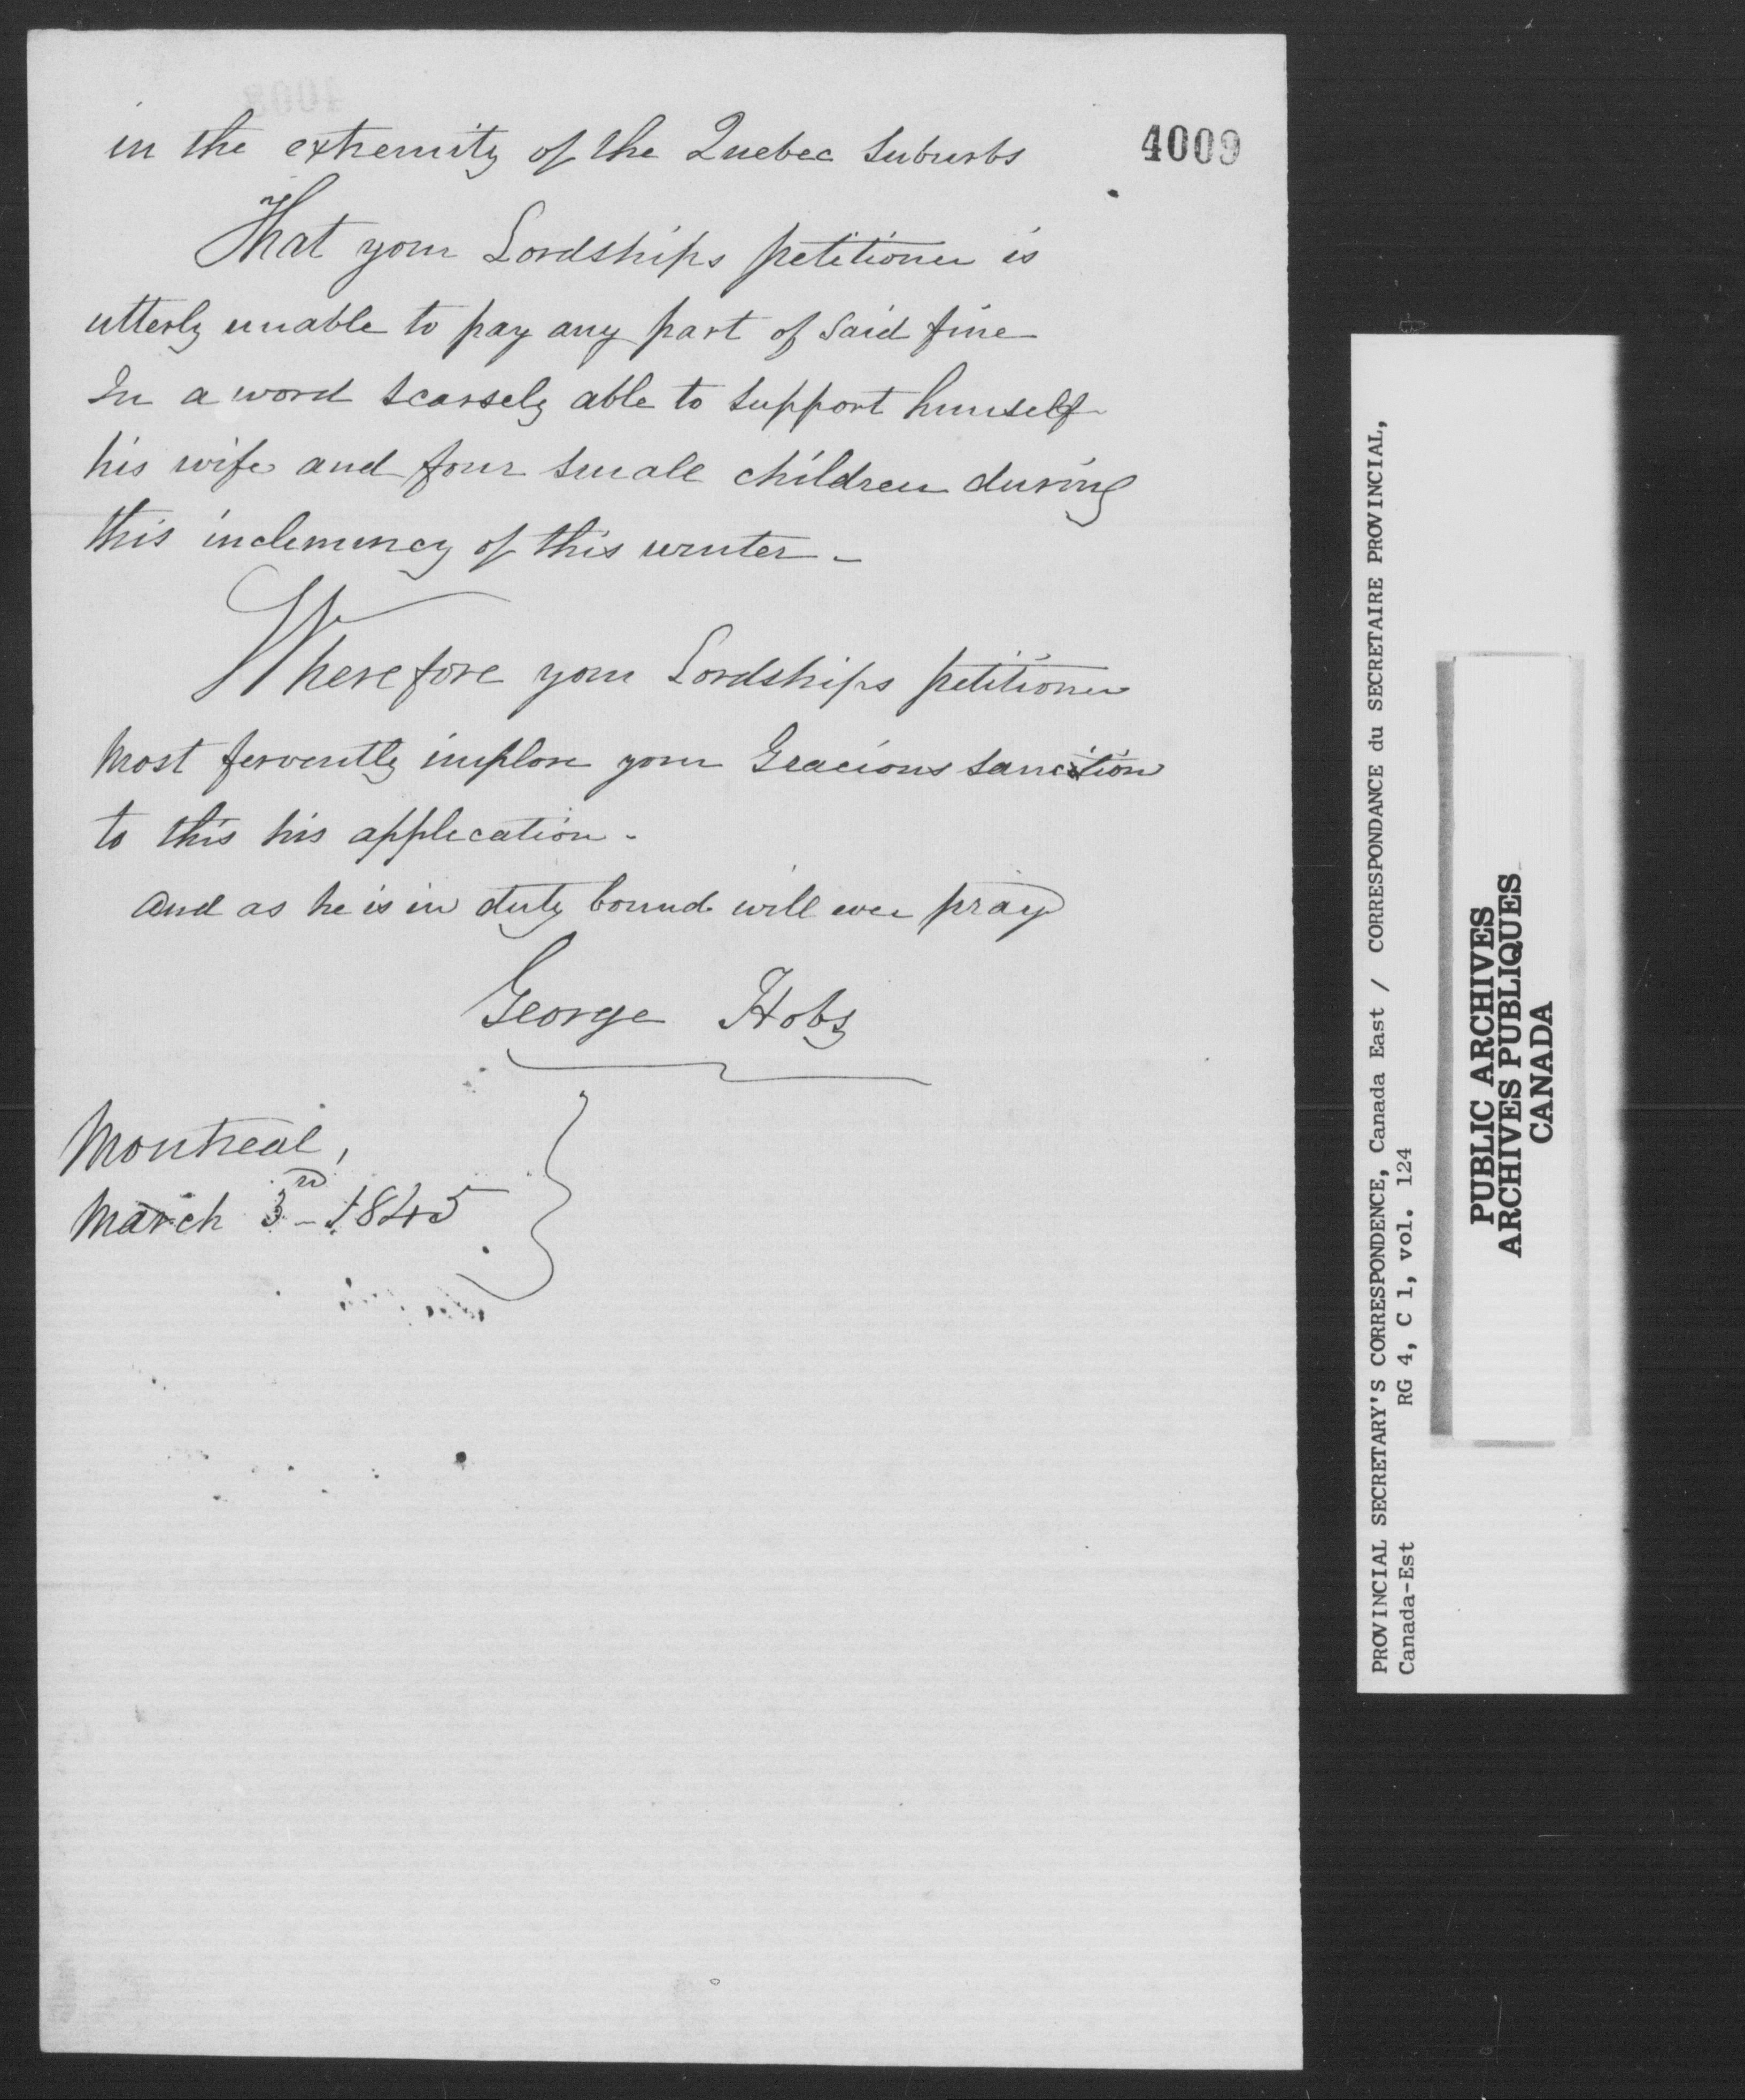 in the extremity of the Quebec Suburbs
4009
That your Lordships petitioner is
utterly unable to pay any part of said fine
In a word scarsely able to support himself
his wife and four small children during
this inclemency of this winter -
Wherefore your Lordships petitioner
most fervently implore your Gracious sanction
to this his application -
and as he is in duty bound will ever pray
George Hobs
Montreal,
March 3rd - 1845
PROVINCIAL SECRETARY'S CORRESPONDENCE, Canada East / CORRESPONDANCE du SECRETAIRE PROVINCIAL,
Canada-Est RG 4, C 1, vol. 124
PUBLIC ARCHIVES
ARCHIVES PUBLIQUES
CANADA